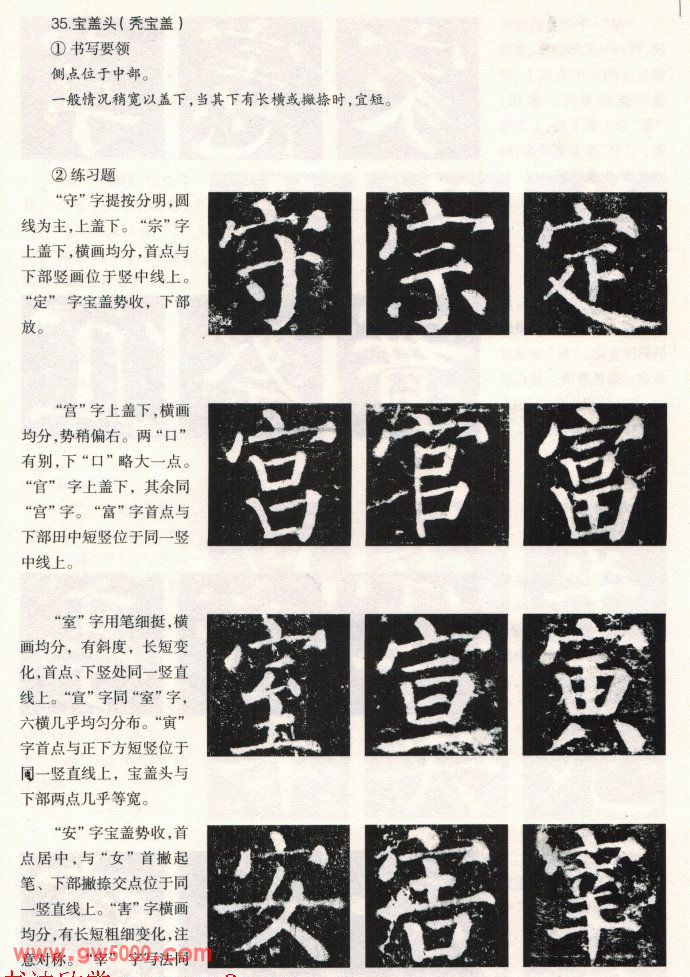 35.宝盖头(秃宝盖)
① 书写要领
侧点位于中部。
一般情况稍宽以盖下,当其下有长横或撇捺时,宜短。
② 练习题
“守”字提按分明,圆
线为主,上盖下。“宗”字
上盖下,横画均分,首点与
下部竖画位于竖中线上。
“定” 字宝盖势收, 下部
放。
守 宗 定
“宫”字上盖下,横画
均分,势稍偏右。两“口”
有别,下“口”略大一点。
“官” 字上盖下, 其余同
“宫”字。“富”字首点与
下部田中短竖位于同一竖
中线上。
宫 官 富
“室”字用笔细挺,横
画均分, 有斜度, 长短变
化,首点、下竖处同一竖直
线上。“宣”字同“室”字,
六横几乎均匀分布。“寅”
字首点与正下方短竖位于
同一竖直线上, 宝盖头与
下部两点几乎等宽。
室 宣 寅
“安”字宝盖势收,首
点居中,与“女”首撇起
笔、下部撇捺交点位于同
一竖直线上。“害”字横画
均分,有长短粗细变化,注
意对称。“宰” 字写法同
安 害 宰
www.gw5000.com